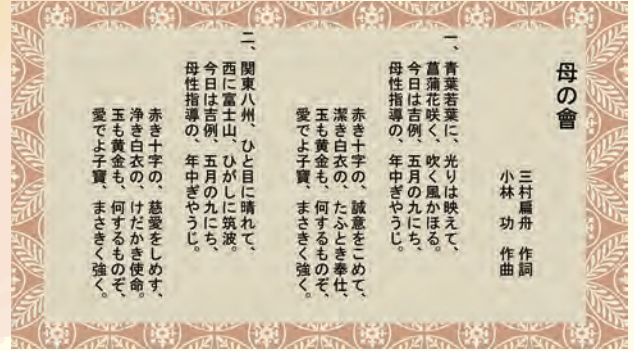 母の會
三村扁舟 作詞
小林 功 作曲
一、青葉若葉に、光りは映えて、
菖蒲花咲く、吹く風かほる。
今日は吉例、五月の九にち、
母性指導の、年中ぎやうじ。
赤き十字の、誠意をこめて、
潔き白衣の、たふとき奉仕、
玉も黄金も、何するものぞ、
愛でよ子寶、まさきく強く。
二、関東八州、ひと目に晴れて、
西に富士山、ひがしに筑波。
今日は吉例、五月の九にち、
母性指導の、年中ぎやうじ。
赤き十字の、慈愛をしめす、
浄き白衣の、けだかき使命。
玉も黄金も、何するものぞ、
愛でよ子寶、まさきく強く。